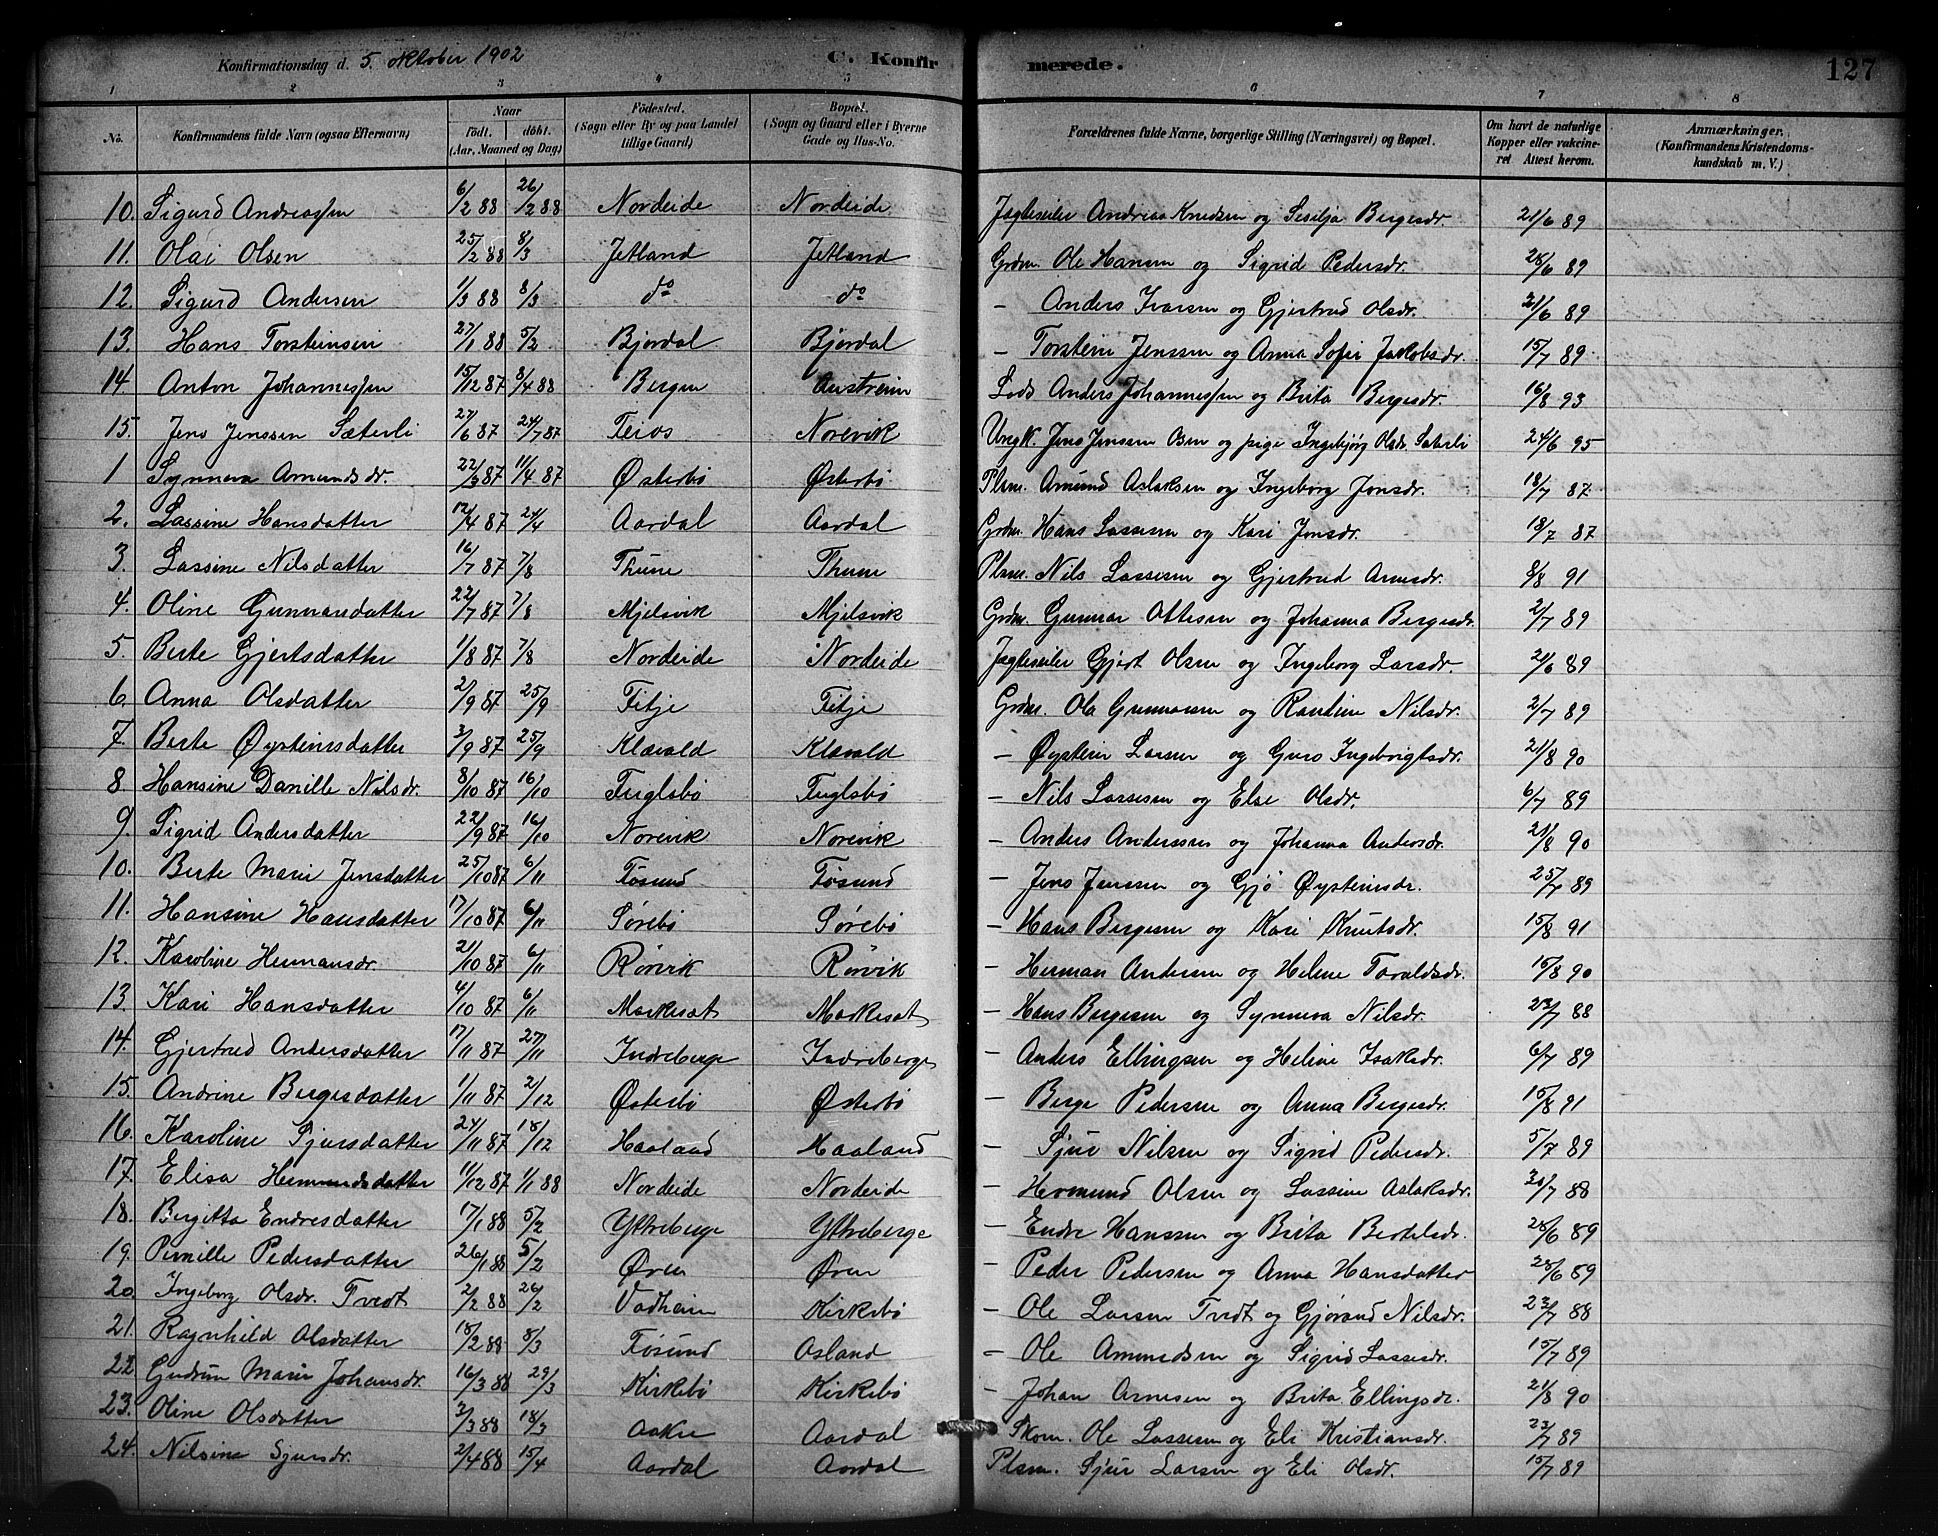 Konfirmationsdag d. 5. oktober 1902 C. Konfir merede. 127
1 2 3 4 5 6 7 8
No. Konfirmandens fulde Navn (ogsaa Efternavn) Naar født. døbt. (Aar, Maaned og Dag) Fødested. (Sogn eller By og paa Landet tillige Gaard) Bopæl. (Sogn og Gaard eller i Byerne Gade og Hus-No. Forældrenes fulde Navne, borgerlige Stilling (Næringsvei) og Bopæl. Om havt de naturlige Kopper eller vakcineret Attest herom. Anmærkninger. (Konfirmandens Kristendomskundskab m. V.)
10. Sigurd Andreassen 6/2 88 26/2 88 Nordeide Nordeide Jagteseiler Andreas Knudsen og Sesilja Bergesdr. 21/6 89
11. Olai Olsen 25/2 88 8/3 Jetland Jetland Grdm. Ole Hansen og Sigrid Pedersdr. 28/6 89
12 Sigurd Andersen 1/3 88 8/3 do do - Anders Ivarsen og Gjertrud Olsdr. 21/6 89
13. Hans Torsteinsen 27/1 88 5/2 Bjordal Bjordal - Torstein Jenssen og Anna Sofie Jakobsdr. 15/7 89
14. Anton Johannessen 15/12 87 8/4 88 Bergen Austreim Lods Anders Johannessen og Brita Bergesdr. 16/8 93
15. Jens Jenssen Sæterli 27/6 87 24/7 87 Teros Norevik Ungk. Jens Jenssen Osen og pige Ingebjørg Olsdr. Sæterli 24/6 95
1 Synneva Amundsdr. 22/3 87 11/4 87 Østerbø Østerbø Plsm. Amund Aslaksen og Ingeborg Jonsdr. 18/7 87
2. Lassine Hansdatter 12/4 87 24/4 Aardal Aardal Grdm. Hans Lassesen og Kari Jonsdr. 18/7 87
3. Lassine Nilsdatter 16/7 87 7/8 Thune Thune Plsm. Nils Lassesen og Gjertrud Arnesdr. 8/8 91
4. Oline Gunnarsdatter 22/7 87 7/8 Mjelsvik Mjelsvik Grdm. Gunnar Ottesen og Johanna Bergesdr. 2/7 89
5. Berte Gjertsdatter 1/8 87 7/8 Nordeide Nordeide Jagteseiler Gjert Olsen og Ingeborg Larsdr. 21/6 89
6. Anna Olsdatter 2/9 87 25/9 Titje Titje Grdm. Ola Gunnarsen og Rantine Nilsdr. 2/7 89
7. Berte Øysteinsdatter 3/9 87 25/9 Klævald Klævald - Øystein Larsen og Guro Ingebrigtsdr. 21/8 90
8 Hansine Danille Nilsdr. 8/10 87 16/10 Fuglsbø Fuglsbø - Nils Lassesen og Else Olsdr. 6/7 89
9. Sigrid Andersdatter 22/9 87 16/10 Norevik Norevik - Anders Anderssen og Johanna Andersdr. 21/8 90
10. Berte Marie Jensdatter 25/10 87 6/11 Føsund Føsund - Jens Jenssen og Gjø Øysteinsdr. 25/7 89
11. Hansine Hansdatter 17/10 87 6/11 Sørebø Sørebø - Hans Bergesen og Kari Knutsdr. 15/8 91
12. Karoline Hermansdr. 21/10 87 6/11 Rørvik Rørvik - Herman Andersen og Helene Taraldsdr. 15/8 90
13. Kari Hansdatter 4/10 87 6/11 Markesæt Markesæt - Hans Bergesen og Synneva Nilsdr. 23/7 88
14. Gjertrud Andersdatter 17/11 87 27/11 Indreberge Indreberge - Anders Ellingsen og Heline Isaksdr. 6/7 89
15. Andrine Bergesdatter 1/11 87 2/12 Østerbø Østerbø - Berge Pedersen og Anna Bergesdr. 15/8 91
16. Karoline Sjursdatter 24/11 87 18/12 Haaland Haaland - Sjur Nilsen og Sigrid Pedersdr. 5/7 89
17. Elisa Hermundsdatter 11/12 87 1/1 88 Nordeide Nordeide - Hermund Olsen og Lassine Aslaksdr. 30/7 88
18. Bergitta Endresdatter 17/1 88 5/2 Ytreberge Ytreberge - Endre Hanssen og Brita Bertelsdr. 28/6 89
19. Pernille Pedersdatter 26/1 88 5/2 Øren Øren - Peder Pedersen og Anna Hansdatter 28/6 89
20. Ingeborg Olsdr. Tvedt 2/2 88 26/2 Vadheim Kirkebø - Ole Larsen Tvedt og Gjørand Nilsdr. 23/7 88
21. Ragnhild Olsdatter 18/2 88 8/3 Føsund Osland - Ole Ammundsen og Sigrid Lassesdr. 15/7 89
22 Gudrun Marie Johansdr. 16/3 88 29/3 Kirkebø Kirkebø - Johan Arnesen og Brita Ellingsdr. 21/8 90
23. Oline Olsdatter 3/3 88 18/3 Aakre Aardal Skom. Ole Lassesen og Eli Kristiansdr. 23/7 89
24. Nilsine Sjursdr. 2/4 88 15/4 Aardal Aardal Plsm. Sjur Larsen og Eli Olsdr. 15/7 89